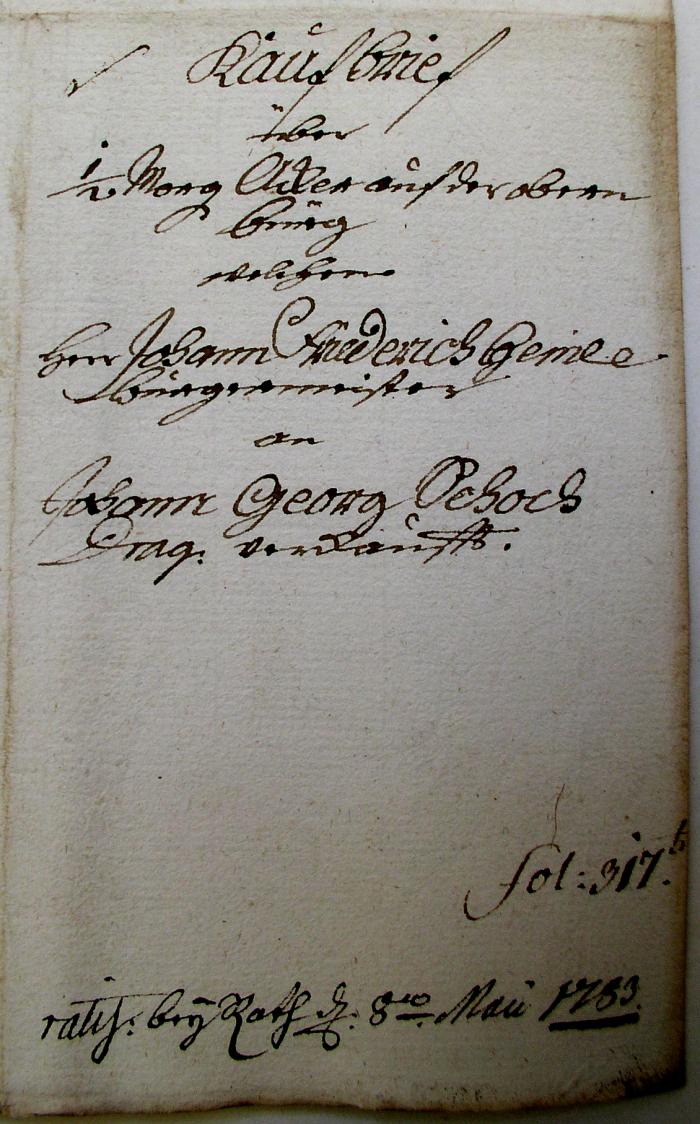 Kaufbrief
über
1/2 Morg Acker auf der obern
bürg
welchen
Herr Johann Friederich
Bürgermeister
an
Johann Georg Schoch
Drag: verkaufft.
fol: 317.b
ratif: bey Rath d. 8ten Maii 1783.